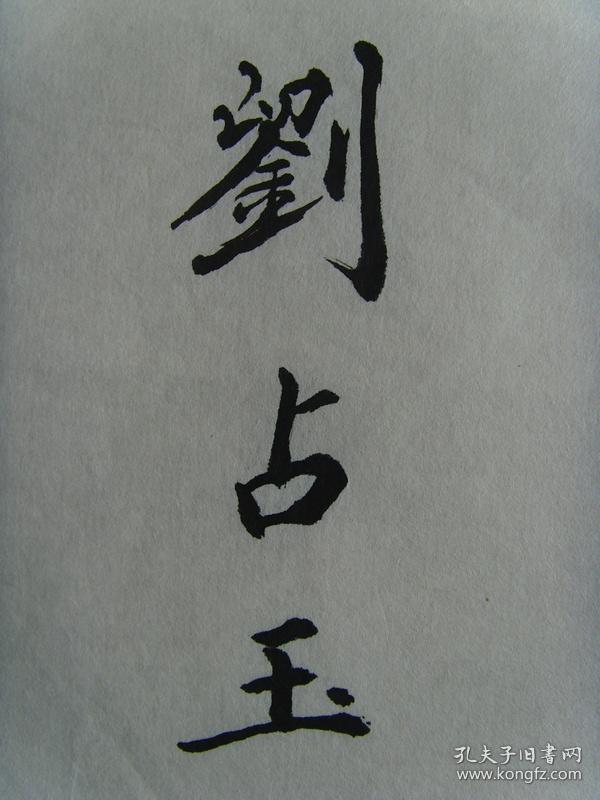 劉占玉
孔夫子旧書网
www.kongfz.com